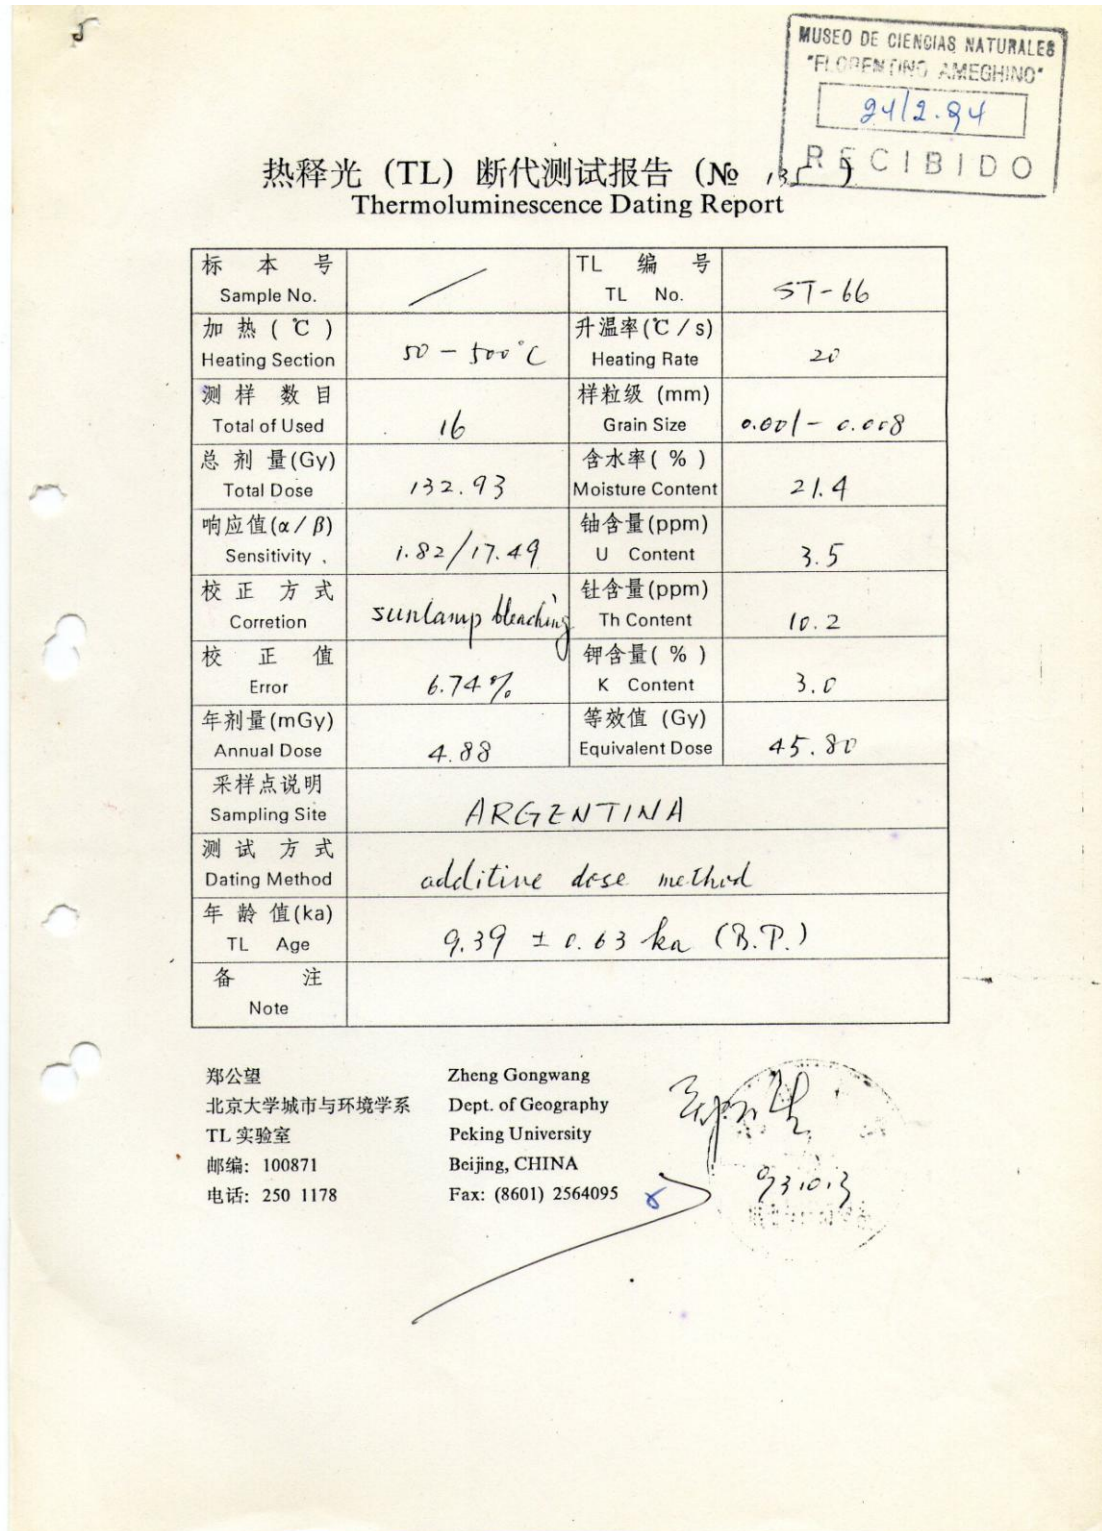 MUSEO DE CIENCIAS NATURALES
"FLORENTINO AMEGHINO"
24/2.94
RECIBIDO
热释光 (TL) 断代测试报告 (№ 135)
Thermoluminescence Dating Report
标 本 号
Sample No.
TL 编 号
TL No.
ST-66
加 热 ( ℃ )
Heating Section
50 - 500°C
升温率(℃ / s)
Heating Rate
20
测 样 数 目
Total of Used
16
样粒级 (mm)
Grain Size
0.001 - 0.008
总 剂 量(Gy)
Total Dose
132.93
含水率( % )
Moisture Content
21.4
响应值(α / β)
Sensitivity
1.82/17.49
铀含量(ppm)
U Content
3.5
校 正 方 式
Corretion
sunlamp bleaching
钍含量(ppm)
Th Content
10.2
校 正 值
Error
6.74%
钾含量( % )
K Content
3.0
年剂量(mGy)
Annual Dose
4.88
等效值 (Gy)
Equivalent Dose
45.80
采样点说明
Sampling Site
ARGENTINA
测 试 方 式
Dating Method
additive dose method
年 龄 值(ka)
TL Age
9.39 ± 0.63 ka (B.P.)
备 注
Note
郑公望 Zheng Gongwang
北京大学城市与环境学系 Dept. of Geography
TL 实验室 Peking University
邮编: 100871 Beijing, CHINA
电话: 250 1178 Fax: (8601) 2564095
93.10.3